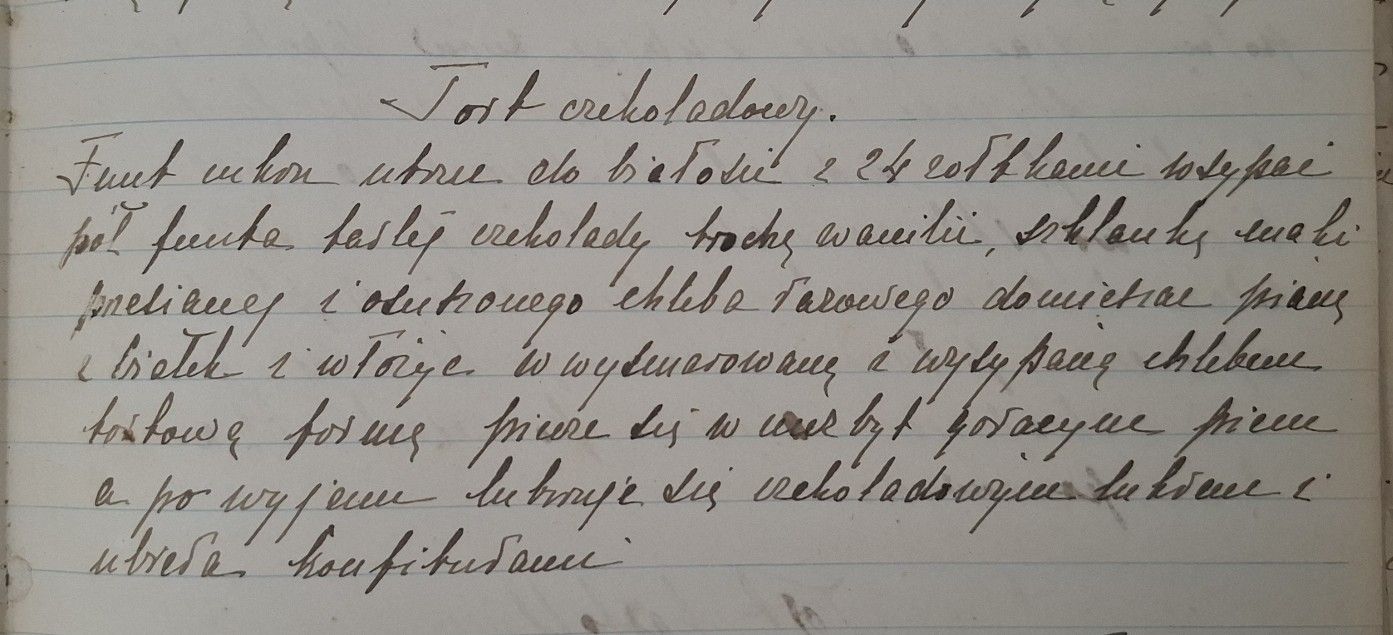 Tort czekoladowy.
Funt cukru utrzeć do białości z 24 żółtkami wsypać
pół funta tartej czekolady trochę wanilii, szklankę mąki
przesianej i osuszonego chleba razowego domieszać pianę
z białek i włożyć w wysmarowaną i wysypaną chlebem
tortową formę piecze się w niezbyt gorącym piecu
a po wyjęciu lukruje się czekoladowym lukrem i
ubiera konfiturami